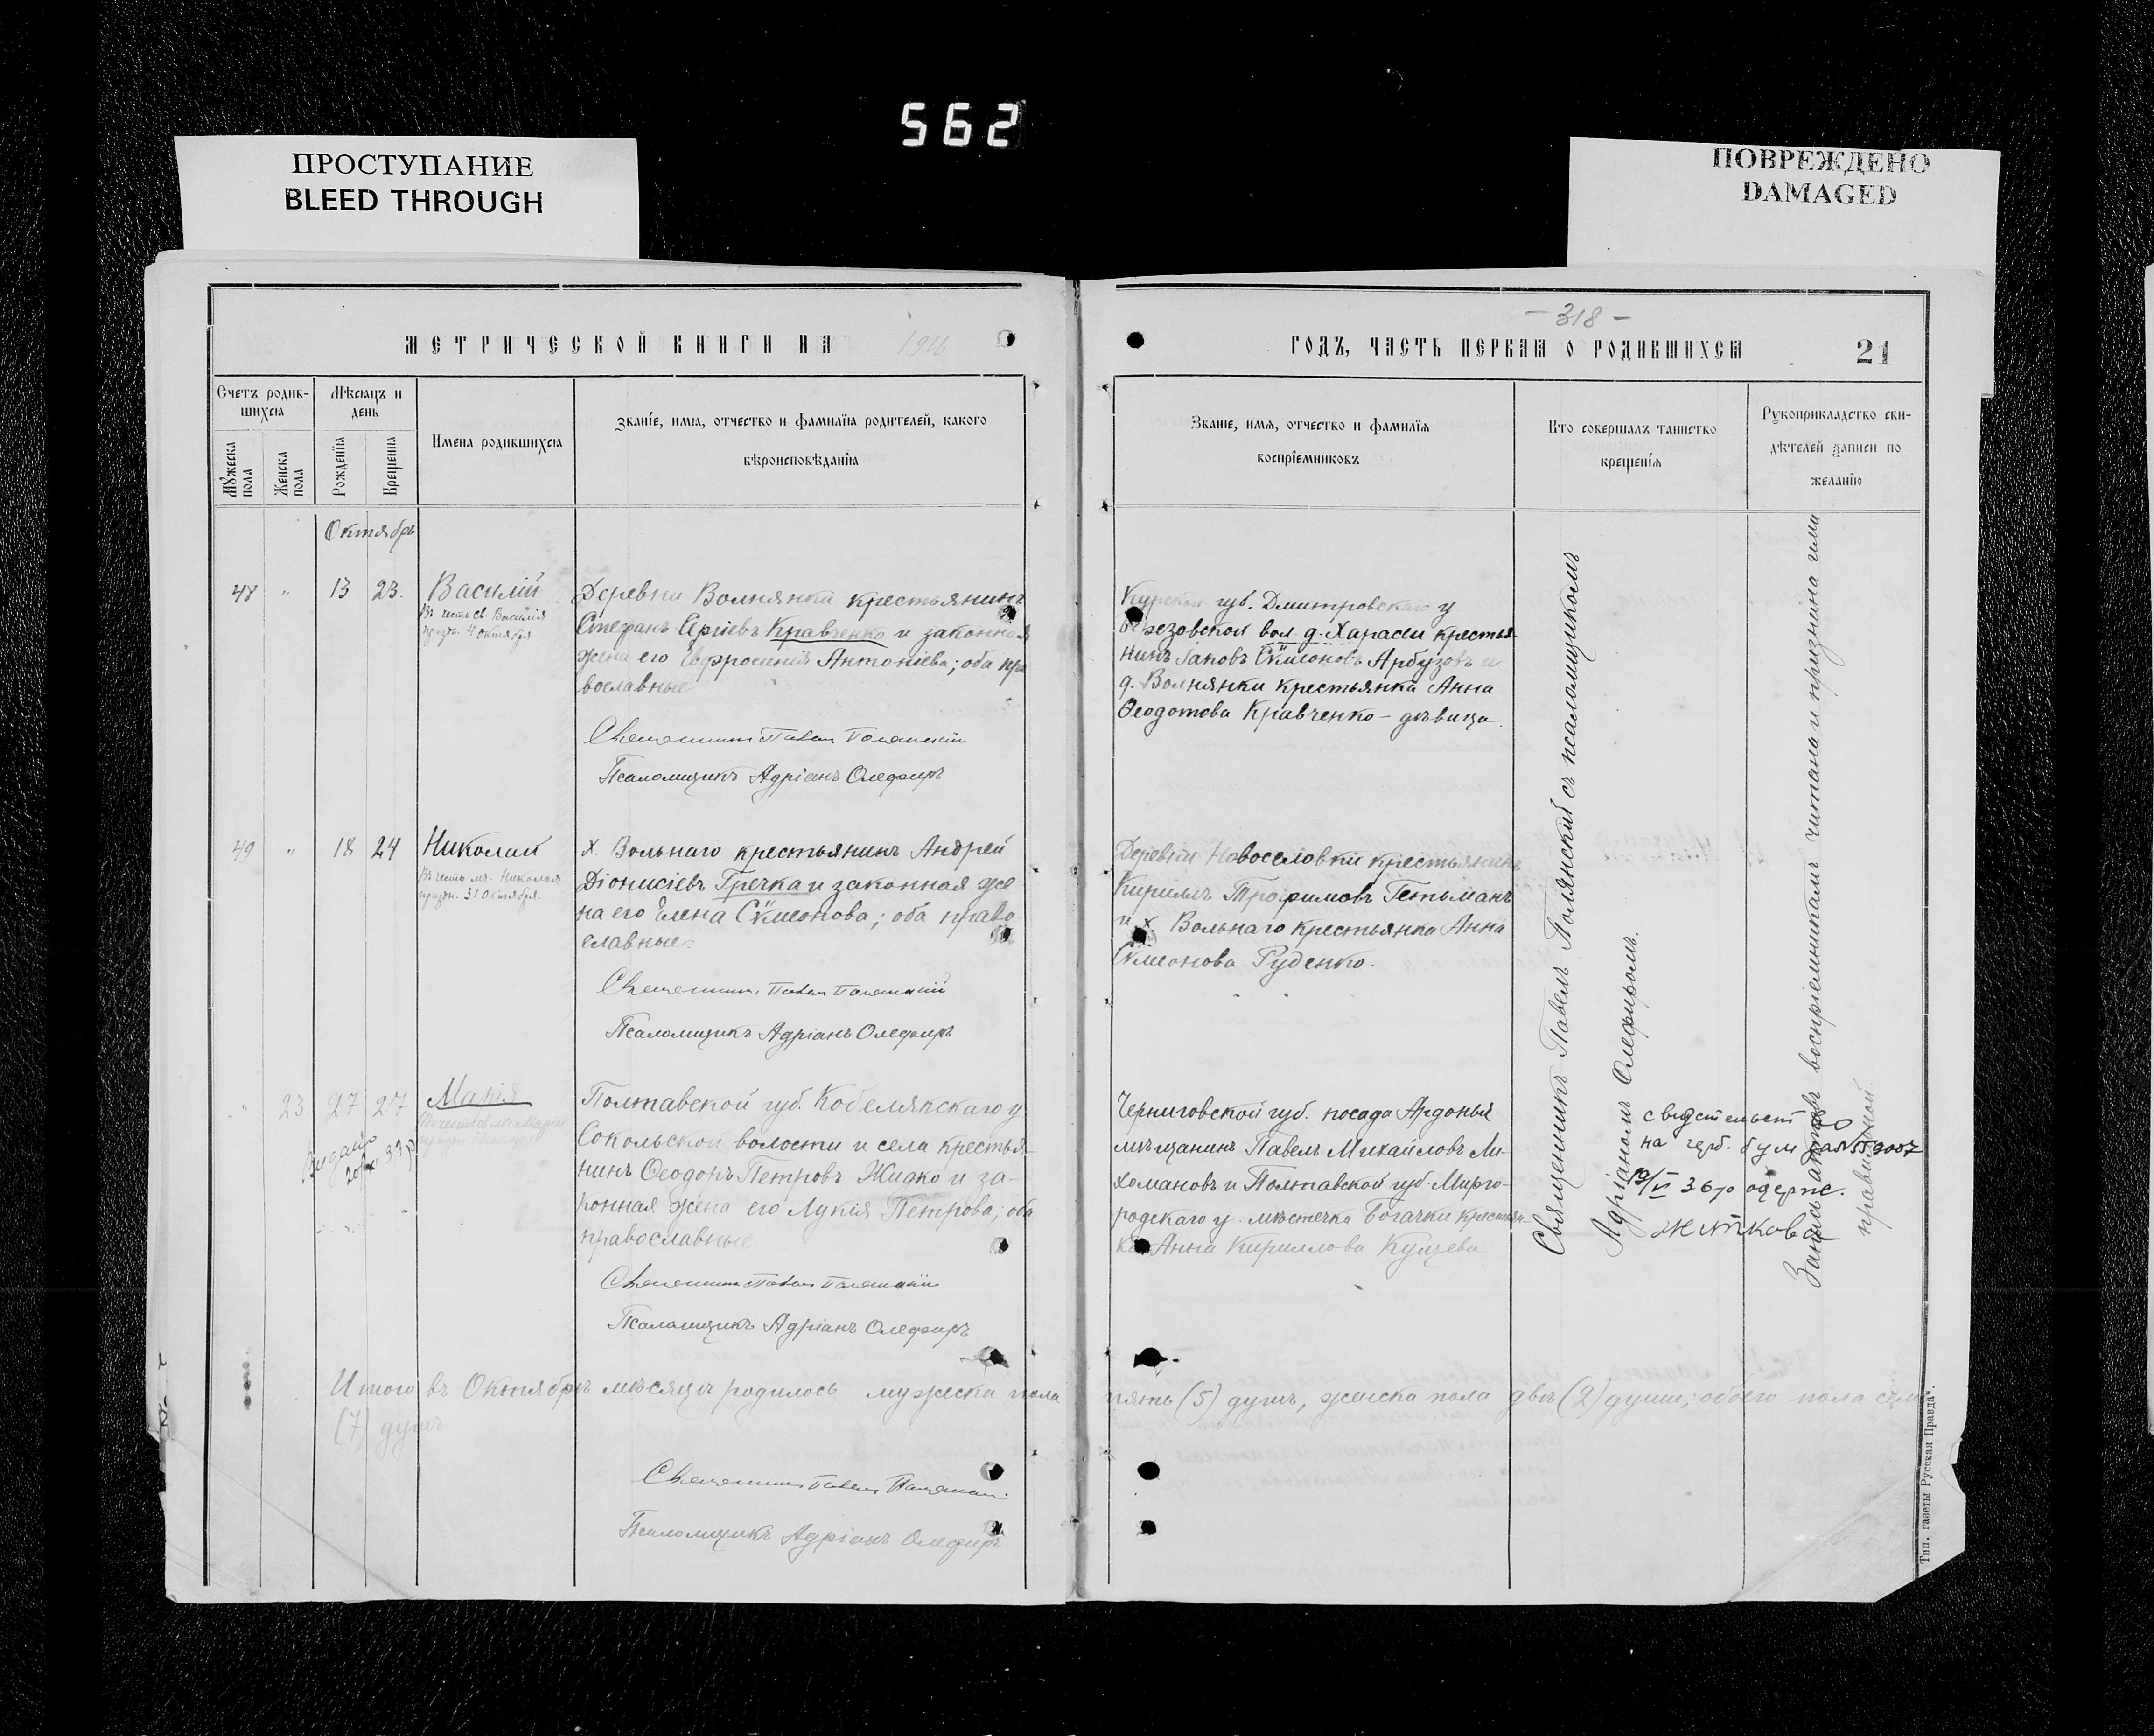 562
ПРОСТУПАНИЕ
BLEED THROUGH
ПОВРЕЖДЕНО
DAMAGED
МЕТРИЧЕСКОЙ КНИГИ НА 1916
Счетъ родив-
шихся
Мѣсяцъ и
день
Мужеска
пола
Женска
пола
Рожденія
Крещенія
Имена родившихся
Званіе, имя, отчество и фамилія родителей, какого
вѣроисповѣданія
Октябрь
48 " 13 23. Василій
Въ честь св. Василія
празд. 4 октября
Деревни Волнянки крестьянинъ
Стефанъ Сергіевъ Кравченко и законная
жена его Евфросинія Антоніева; оба пра
вославные
Священникъ Павелъ Полянскій
Псаломщикъ Адріанъ Олефиръ
49 " 18 24 Николай
Въ честь мч. Николая
праздн. 31 Октября.
Х. Вольнаго крестьянинъ Андрей
Діонисіевъ Гречка и законная же
на его Елена Сѵмеонова; оба право
славные.
Священникъ Павелъ Полянскій
Псаломщикъ Адріанъ Олефиръ
" 23 27 27 Марія
Видано
Полтавской губ. Кобелякскаго у.
Сокольской волости и села крестья-
нинъ Ѳеодоръ Петровъ Жидко и за-
конная жена его Лукія Петрова; оба
православные
Священникъ Павелъ Полянскій
Псаломщикъ Адріанъ Олефиръ
Итого въ Октябрѣ мѣсяцѣ родилось мужеска пола
(7) душъ
Священникъ Павелъ Полянскій
Псаломщикъ Адріанъ Олефиръ
- 318 -
ГОДЪ, ЧАСТЬ ПЕРВАЯ О РОДИВШИХСЯ
21
Званіе, имя, отчество и фамилія
воспріемниковъ
Кто совершалъ таинство
крещенія
Рукоприкладство сви-
дѣтелей записи по
желанію
Курской губ. Дмитровскаго у
Березовской вол. д. Хараси крестья
нинъ Іаковъ Сѵмеоновъ Арбузовъ и
д. Волнянки крестьянка Анна
Ѳеодотова Кравченко - дѣвица.
Деревни Новоселовки крестьянинъ
Кириллъ Трофимовъ Гетьманъ
и х. Вольнаго крестьянка Анна
Сѵмеонова Руденко.
Черниговской губ. посада Ардонья
мѣщанинъ Павелъ Михаиловъ Ли-
хомановъ и Полтавской губ. Мирго-
родскаго у. мѣстечка Богачки крестьян-
ка Анна Кириллова Куцева
Священникъ Павелъ Полянскій съ псаломщикомъ
Адріаномъ Олефиромъ.
Запись актовъ воспріемниками читана и признана ими
правильной
свидетельст
на герб. бум
36 р одерж.
пять (5) душъ, женска пола двѣ (2) души; обоего пола семь
Тип. газеты Русская Правда".